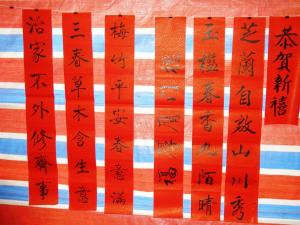 恭贺新禧
芝蘭自放山川秀
玉樓春香九陌晴
梅竹平安春意满
三春草木含生意
治家不外修齊事